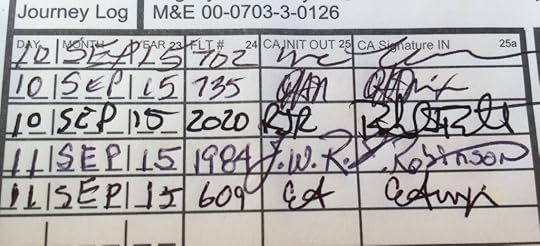 Journey Log M&E 00-0703-3-0126
DAY MONTH YEAR 23 FLT # 24 CA INIT OUT 25 CA Signature IN 25a
10 SEP 15 702
10 SEP 15 735
10 SEP 15 2020 RJR
11 SEP 15 1984 J.W.R. J. Robinson
11 SEP 15 609 EA